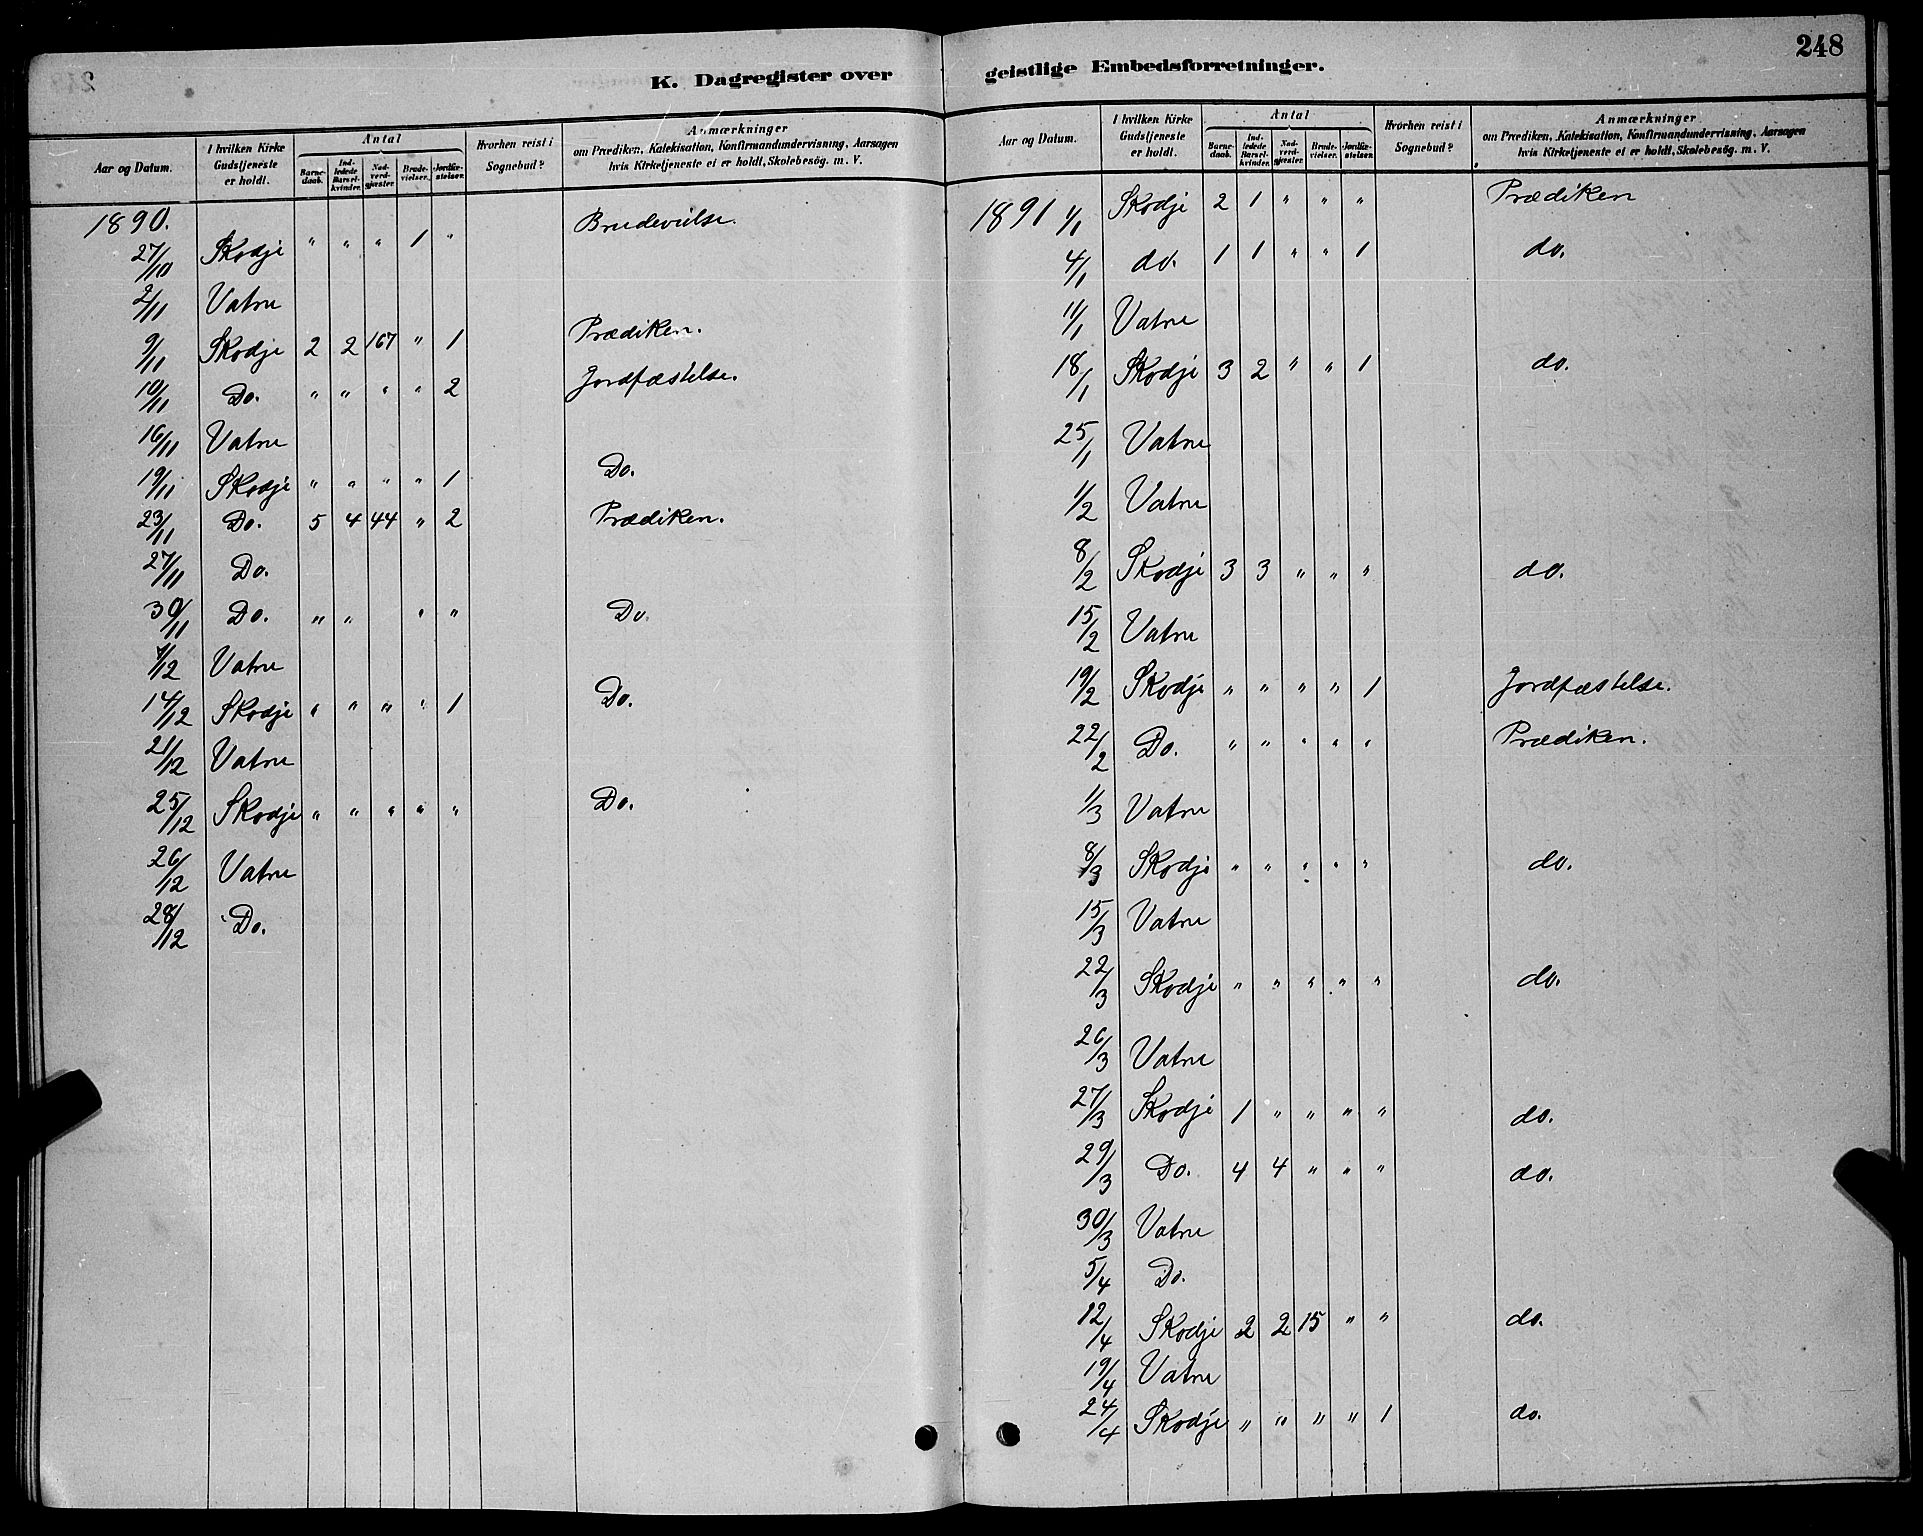 248
K. Dagregister over geistlige Embedsforretninger.
Aar og Datum.
I hvilken Kirke Gudstjeneste er holdt.
Antal
Barnedaab.
Indledede Barselkvinder.
Nadverdgjæster.
Brudevielser.
Jordfæstelser.
Hvorhen reist i Sognebud?
Anmærkninger
om Prædiken, Katekisation, Konfirmandundervisning, Aarsagen
hvis Kirketjeneste ei er holdt, Skolebesög. m. V.
1890.
27/10 Skodje " " " 1 " Brudevielse.
2/11 Vatne
9/11 Skodje 2 2 167 " 1 Prædiken.
10/11 Do. " " " " 2 Jordfæstelse.
16/11 Vatne
19/11 Skodje " " " " 1 Do.
23/11 Do. 5 4 44 " 2 Prædiken.
27/11 Do.
30/11 Do. " " " " Do.
7/12 Vatne
14/12 Skodje " " " " 1 Do.
21/12 Vatne
25/12 Skodje " " " " " Do.
26/12 Vatne
28/12 Do.
Aar og Datum.
I hvilken Kirke Gudstjeneste er holdt.
Antal
Barnedaab.
Indledede Barselkvinder.
Nadverdgjæster.
Brudevielser.
Jordfæstelser.
Hvorhen reist i Sognebud?
Anmærkninger
om Prædiken, Katekisation, Konfirmandundervisning, Aarsagen
hvis Kirketjeneste ei er holdt, Skolebesög. m. V.
1891 1/1 Skodje 2 1 " " " Prædiken
4/1 do. 1 1 " " 1 do.
11/1 Vatne
18/1 Skodje 3 2 " " 1 do.
25/1 Vatne
1/2 Vatne
8/2 Skodje 3 3 " " " do.
15/2 Vatne
19/2 Skodje " " " " 1 Jordfæstelse.
22/2 Do. " " " " " Prædiken.
1/3 Vatne
8/3 Skodje " " " " " do.
15/3 Vatne
22/3 Skodje " " " " " do.
26/3 Vatne
27/3 Skodje 1 " " " " do.
29/3 Do. 4 4 " " " do.
30/3 Vatne
5/4 Do.
12/4 Skodje 2 2 15 " " do.
19/4 Vatne
24/4 Skodje " " " " 1 do.